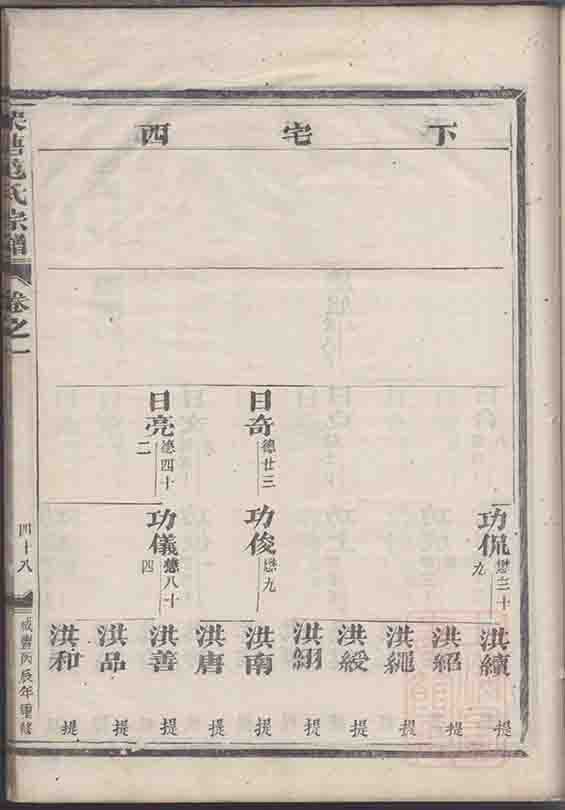 下宅西
日奇 德廿三
日亮 德四十二
功侃 懋三十九
功俊 懋九
功儀 懋八十四
洪續 提
洪紹 提
洪繩 提
洪綬 提
洪翃 提
洪南 提
洪唐 提
洪善 提
洪品 提
洪和 提
氏宗譜
卷之一
四十八
咸豐丙辰年重修